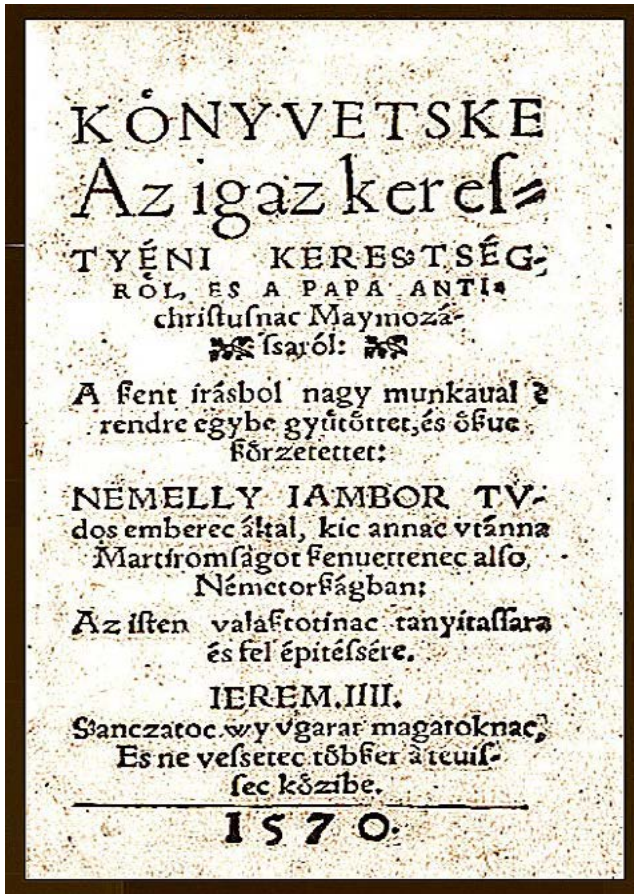 KŐNYVETSKE
Az igaz kereſ⸗
TYÉNI KERESTSÉG-
RŐL, ES A PAPA ANTI⸗
chriſtuſnac Maymozá-
ſsaról:
A ſzent írásbol nagy munkaual
rendre egybe gyűtőttet, és őſzue
ſzőrzetettet:
NEMELLY IAMBOR TV-
dos emberec által, kic annac vtánna
Martíromſágot ſzenuettenec alſo
Németorſzágban:
Az iſten valaſztotinac tanyítaſſara
és fel épitéſsére.
IEREM. IIII.
Sanczatoc wy vgarat magatoknac,
Es ne veſsetec tőbſzer à teuiſ-
ſec kőzibe.
1570.